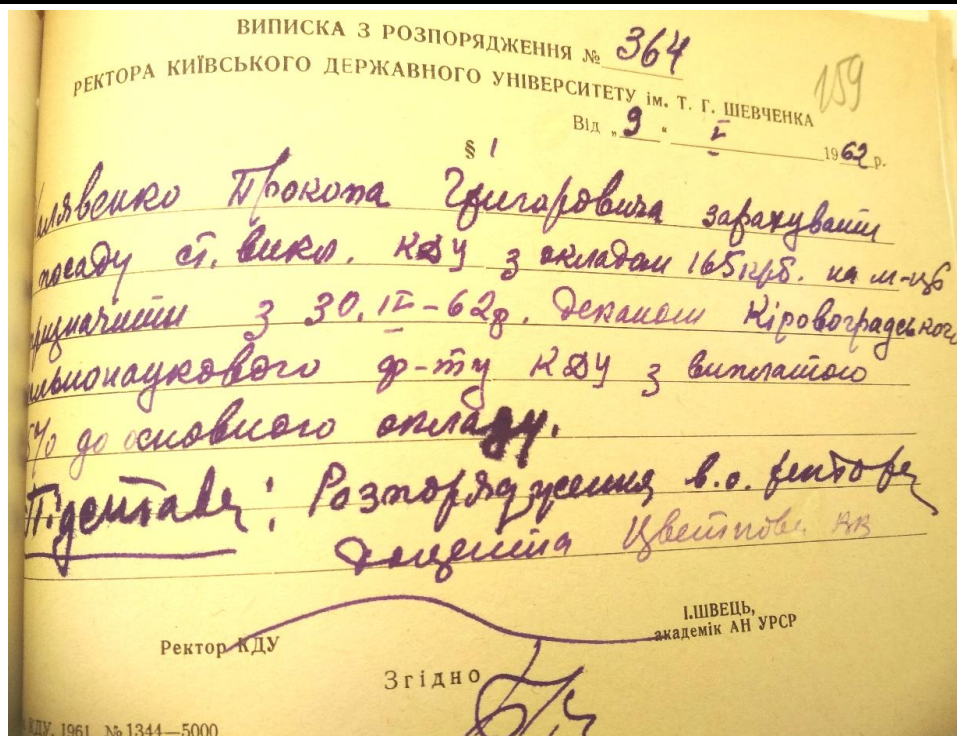 ВИПИСКА З РОЗПОРЯДЖЕННЯ № 364
159
РЕКТОРА КИЇВСЬКОГО ДЕРЖАВНОГО УНІВЕРСИТЕТУ ім. Т. Г. ШЕВЧЕНКА
Від „9" V 1962 р.
§ 1
Прокопа Григоровича зарахувати
посаду ст. викл. КДУ з окладом 165 крб. на м-ць
призначити з 30.IV-62р. деканом Кіровоградського
ф-ту КДУ з виплатою
5% до основного окладу.
Підстава: Розпорядження в.о. ректора
доцента Цветкова ВВ
Ректор КДУ
І.ШВЕЦЬ,
академік АН УРСР
Згідно
КДУ, 1961, № 1344—5000